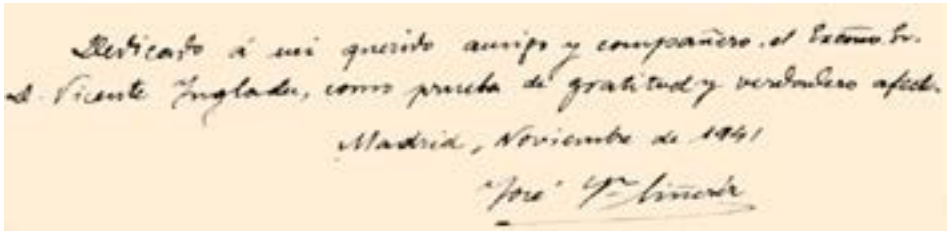 Dedicado á mi querido amigo y compañero, el Excmo. Sr.
D. Vicente Inglada, como prueba de gratitud y verdadero afecto.
Madrid, Noviembre de 1941
José Mª